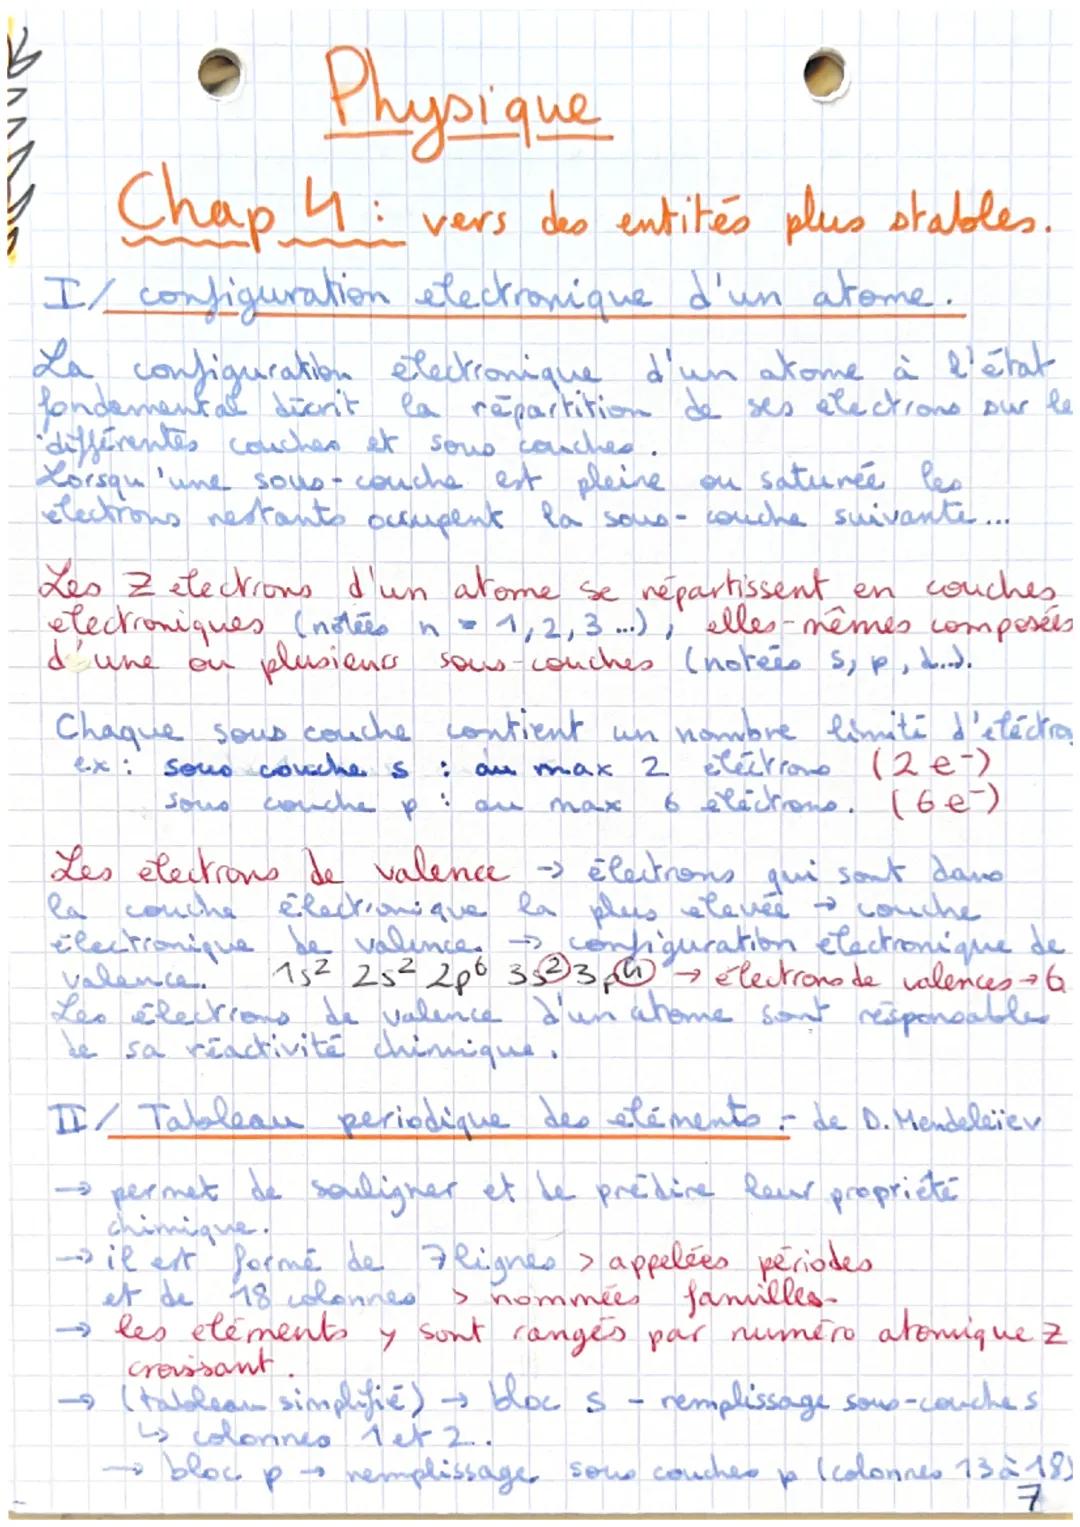 Physique
Chap 4 : vers des entités plus stables.
I/ configuration electronique d'un atome.
La configuration électronique d'un atome à l'état
fondamental décrit la répartition de ses électrons sur le
différentes couches et sous couches.
Lorsqu'une sous-couche est pleine ou saturée les
électrons restants occupent la sous-couche suivante...
Les Z électrons d'un atome se répartissent en couches
électroniques (notées n = 1, 2, 3 ...), elles-mêmes composées
d'une ou plusieurs sous-couches (notées s, p, d...).
Chaque sous couche contient un nombre limité d'électro
ex : sous couche s : au max 2 électrons (2 e-)
sous couche p : au max 6 électrons. (6 e-)
Les électrons de valence → électrons qui sont dans
la couche électronique la plus élevée → couche
électronique de valence. → configuration électronique de
valence. 1s² 2s² 2p⁶ 3s² 3p⁴ → électrons de valences → 6
Les électrons de valence d'un atome sont responsables
de sa réactivité chimique.
II/ Tableau periodique des eléments : - de D. Mendeleïev
→ permet de souligner et de prédire leur propriété
chimique.
→ il est formé de 7 lignes > appelées périodes
et de 18 colonnes > nommées familles.
→ les eléments y sont rangés par numéro atomique Z
croissant.
→ (tableau simplifié) → bloc s - remplissage sous-couche s
↳ colonnes 1 et 2..
→ bloc p → remplissage sous couches p (colonnes 13 à 18)
7